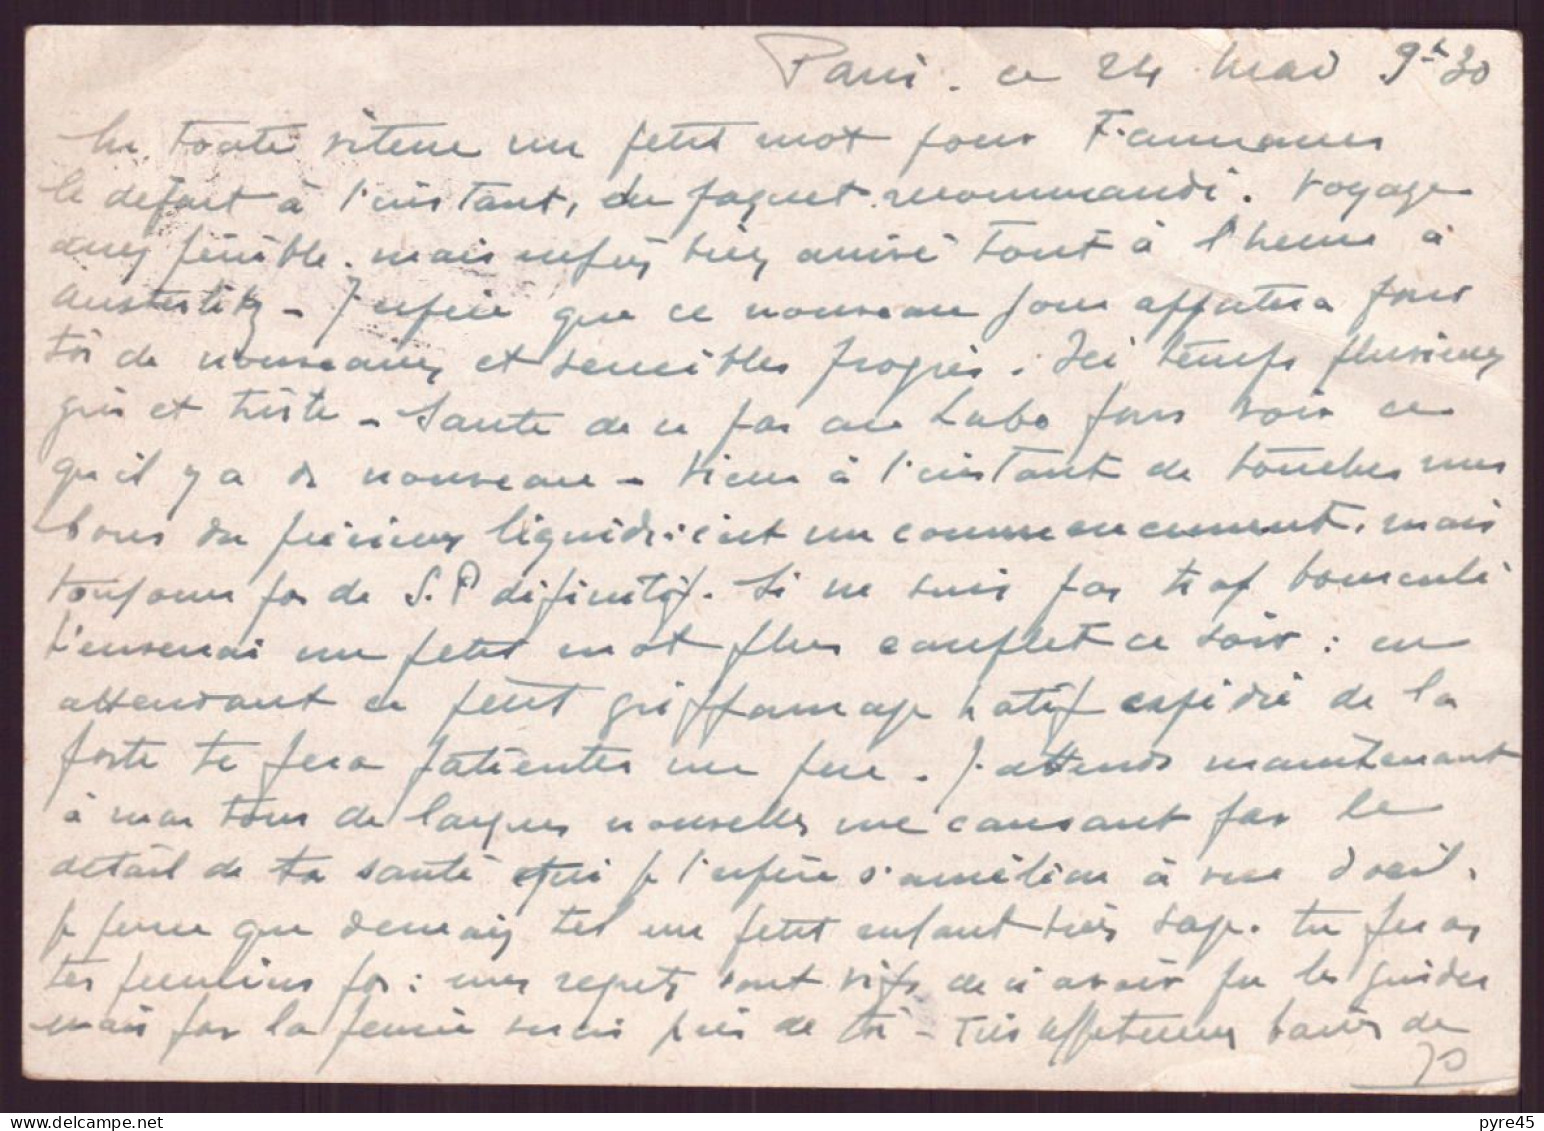 Paris. ce 24 Mai 9h30
En toute vitesse un petit mot pour t'annoncer
le départ à l'instant, du paquet recommandé. Voyage
assez pénible. mais enfin bien arrivé tout à l'heure à
Austerlitz - J'espère que ce nouveau jour apportera pour
toi de nouveaux et sensibles progrès. Ici temps pluvieux
gris et triste - Saute de ce pas au Labo pour voir ce
qu'il y a de nouveau - Viens à l'instant de toucher mes
bons du précieux liquide: c'est un commencement. mais
toujours pas de S.P définitif. Si ne suis pas trop bousculé
t'enverrai un petit mot plus complet ce soir : en
attendant ce petit griffonnage hâtif expédié de la
poste te fera patienter un peu. J'attends maintenant
à mon tour de larges nouvelles me causant par le
détail de ta santé qui je l'espère s'améliore à vue d'oeil.
Je pense que demain tel un petit enfant très sage. tu feras
tes premiers pas : mes regrets sont vifs de n'avoir pu les guider
mais par la pensée serai près de toi - Très affectueux baisers de